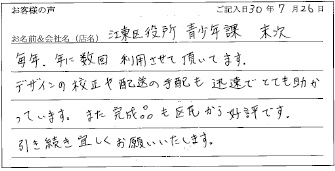 お客様の声 ご記入日30年7月26日
お名前&会社名(店名) 江東区役所 青少年課 末次
毎年、年に数回 利用させて頂いてます。
デザインの校正や配送の手配も 迅速でとても助か
っています。また完成品も区民から好評です。
引き続き宜しくお願いいたします。